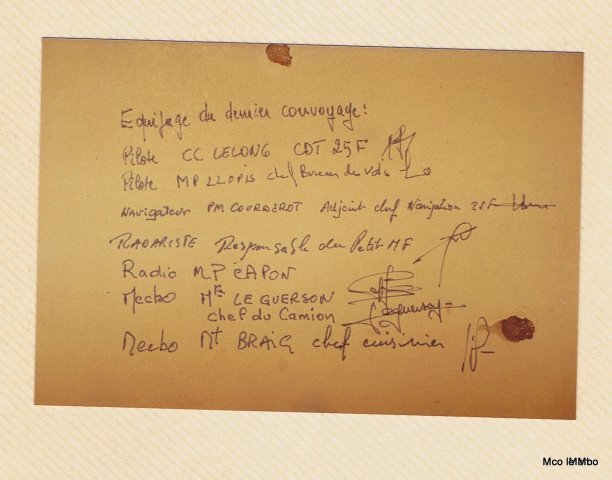 Equipage du dernier convoyage:
Pilote CC LELONG CDT 25F
Pilote MP LLOPIS chef Bureau de Vols
Navigateur PM COURDEROT Adjoint chef Navigation 25F
RADARISTE Responsable du Petit
Radio MP CAPON
Mecbo ME LE GUERSON
chef du Camion
Mecbo Mt BRAIG chef cuisinier